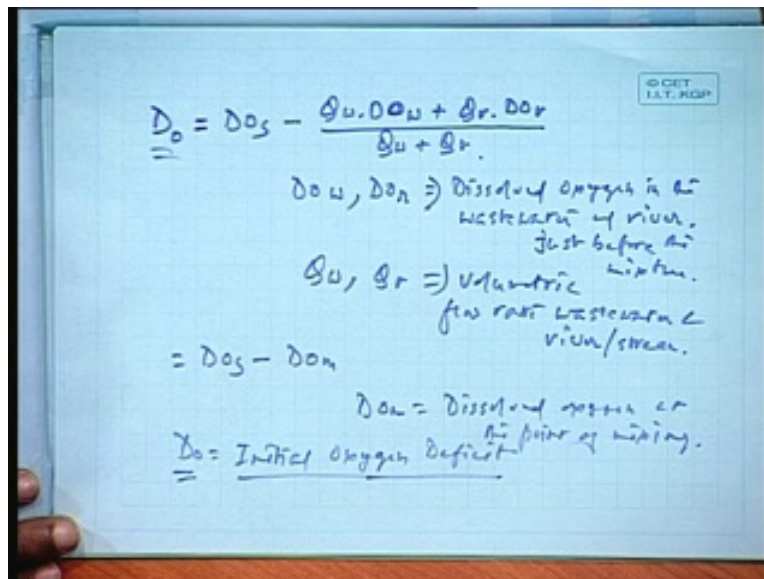 © CET
I.I.T. KGP
D₀ = DOs - (Qw.DOw + Qr.DOr) / (Qw + Qr)
DOw, DOr ⇒ Dissolved oxygen in the
wastewater & river.
just before the
mixture.
Qw, Qr ⇒ volumetric
flow rate wastewater &
river/stream.
= DOs - DOm
DOm = Dissolved oxygen at
the point of mixing.
D₀ = Initial Oxygen Deficit